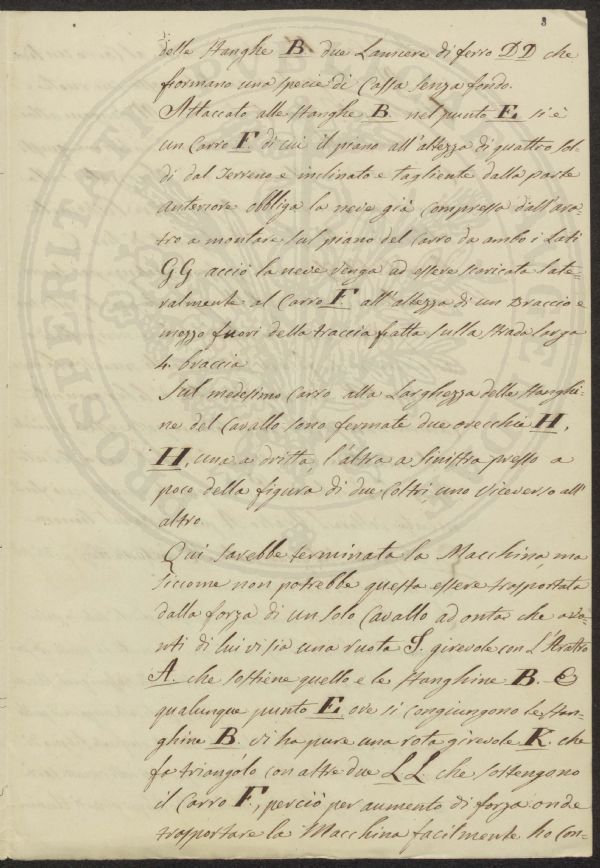 8
delle Stanghe B due Lamiere di ferro DD che
formano una specie di Cassa senza fondo.
Attaccato alle Stanghe B nel punto E si è
un Carro F di cui il piano all'altezza di quattro Sol-
di dal Terreno e inclinato e tagliente dalla parte
anteriore obbliga la neve già compressa dall'ara-
tro a montare sul piano del Carro da ambo i Lati
GG acciò la neve venga ad essere scaricata late-
ralmente al Carro F. all'altezza di un Braccio e
mezzo fuori della traccia fatta sulla strada larga
4. braccia
Sul medesimo Carro alla Larghezza delle Stanghi-
ne del Cavallo sono fermate due orecchie H,
H, una a dritta, l'altra a sinistra presso a
poco della figura di due Coltri uno viceverso all'
altro.
Qui sarebbe terminata la Macchina, ma
siccome non potrebbe questa essere trasportata
dalla forza di un solo Cavallo ad onta che ava-
nti di lui vi sia una ruota S. girevole con L'Aratro
A. che sostiene quello e le Stanghine B. E
qualunque punto E. ove si congiungono le Stan-
ghine B. vi ha pure una rota girevole K. che
fa triangolo con altre due LL. che sostengono
il Carro F, perciò per aumento di forza onde
trasportare la Macchina facilmente ho con-
PROSPERITATI